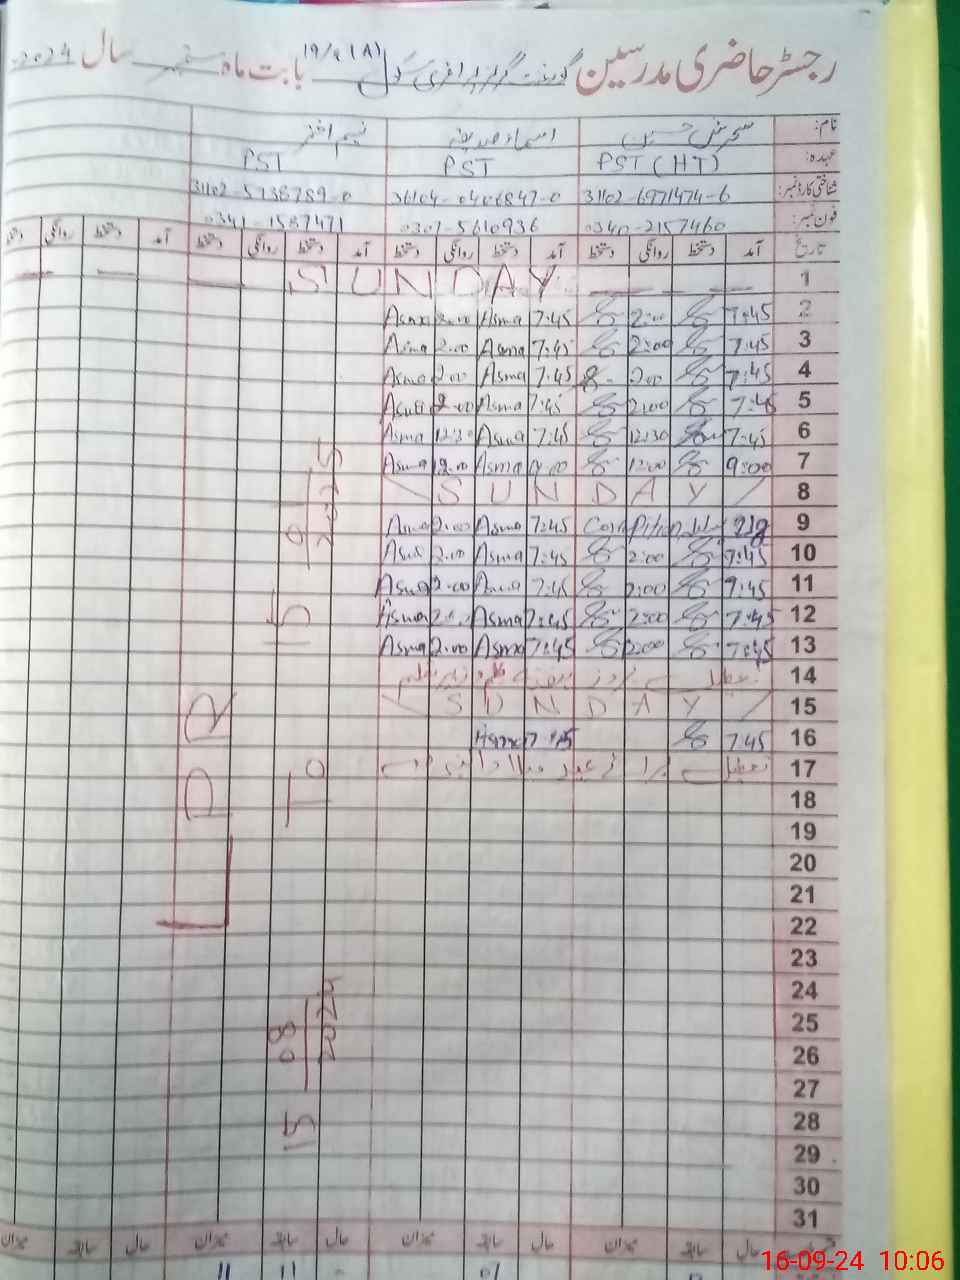 رجسٹر حاضری مدرسین گورنمنٹ گرلز پرائمری سکول 19/9 (A) بابت ماہ ستمبر سال 2024
نام: سحرش اسماء صدیقہ نسیم اختر
عہدہ: PST (HT) PST PST
شناختی کارڈ نمبر: 31102-6971474-6 36104-0406847-0 31102-5738789-0
فون نمبر: 0340-2157460 0301-5610936 0341-1587471
تاریخ آمد دستخط روانگی دستخط آمد دستخط روانگی دستخط آمد دستخط روانگی دستخط آمد دستخط روانگی دستخط
1 SUNDAY
2 7:45 2:00 7:45 Asma 2:00 Asma
3 7:45 2:00 7:45 Asma 2.00 Asma
4 7:45 2:00 7:45 Asma 2.00 Asma
5 7:45 2:00 7:45 Asma 2.00 Asma
6 7:45 12:30 7:45 Asma 12:30 Asma
7 9:00 12:00 9:00 Asma 12.00 Asma
8 SUNDAY
9 7:45 Asma 2.00 Asma
10 7:45 2:00 7:45 Asma 2.00 Asma
11 7:45 2:00 7:45 Asma 2.00 Asma
12 7:45 2:00 7:45 Asma 2.00 Asma
13 7:45 2:00 7:45 Asma 2.00 Asma
14
15 SUNDAY
16 7:45 7:45 Asma
17
18
19
20
21
22
23
24
25
26
27
28
29
30
31
LPR
15 08 2024 To 15 9 2025
حال سابقہ میزان حال سابقہ میزان حال سابقہ میزان حال سابقہ میزان
16-09-24 10:06